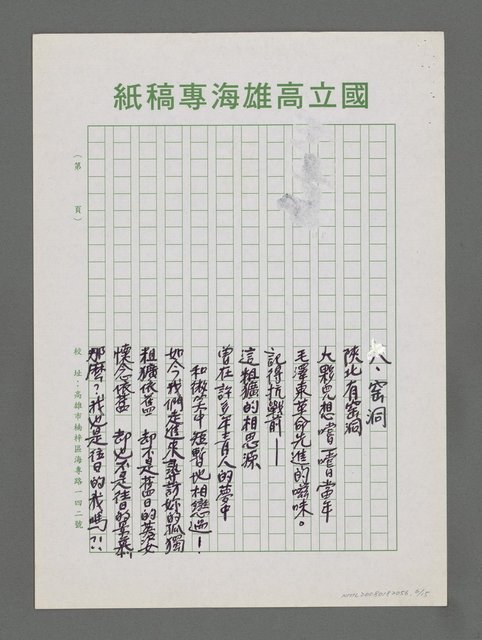 國立高雄海專稿紙
(第　頁)
校址：高雄市楠梓區海專路一四二號
八、窑洞
陝北有窑洞
大夥兒想嚐嚐當年
毛澤東革命先進的滋味。
記得抗戰前——
這粗獷的相思源
曾在許多年青人的夢中
和微笑中 短暫地相戀過！
如今我們走進來尋訪妳的孤獨
粗獷依舊 却不是舊日的
懷念依舊 却也不是往日的
那麽？我還是往日的我嗎？！
NMTL20080182056. 6/15